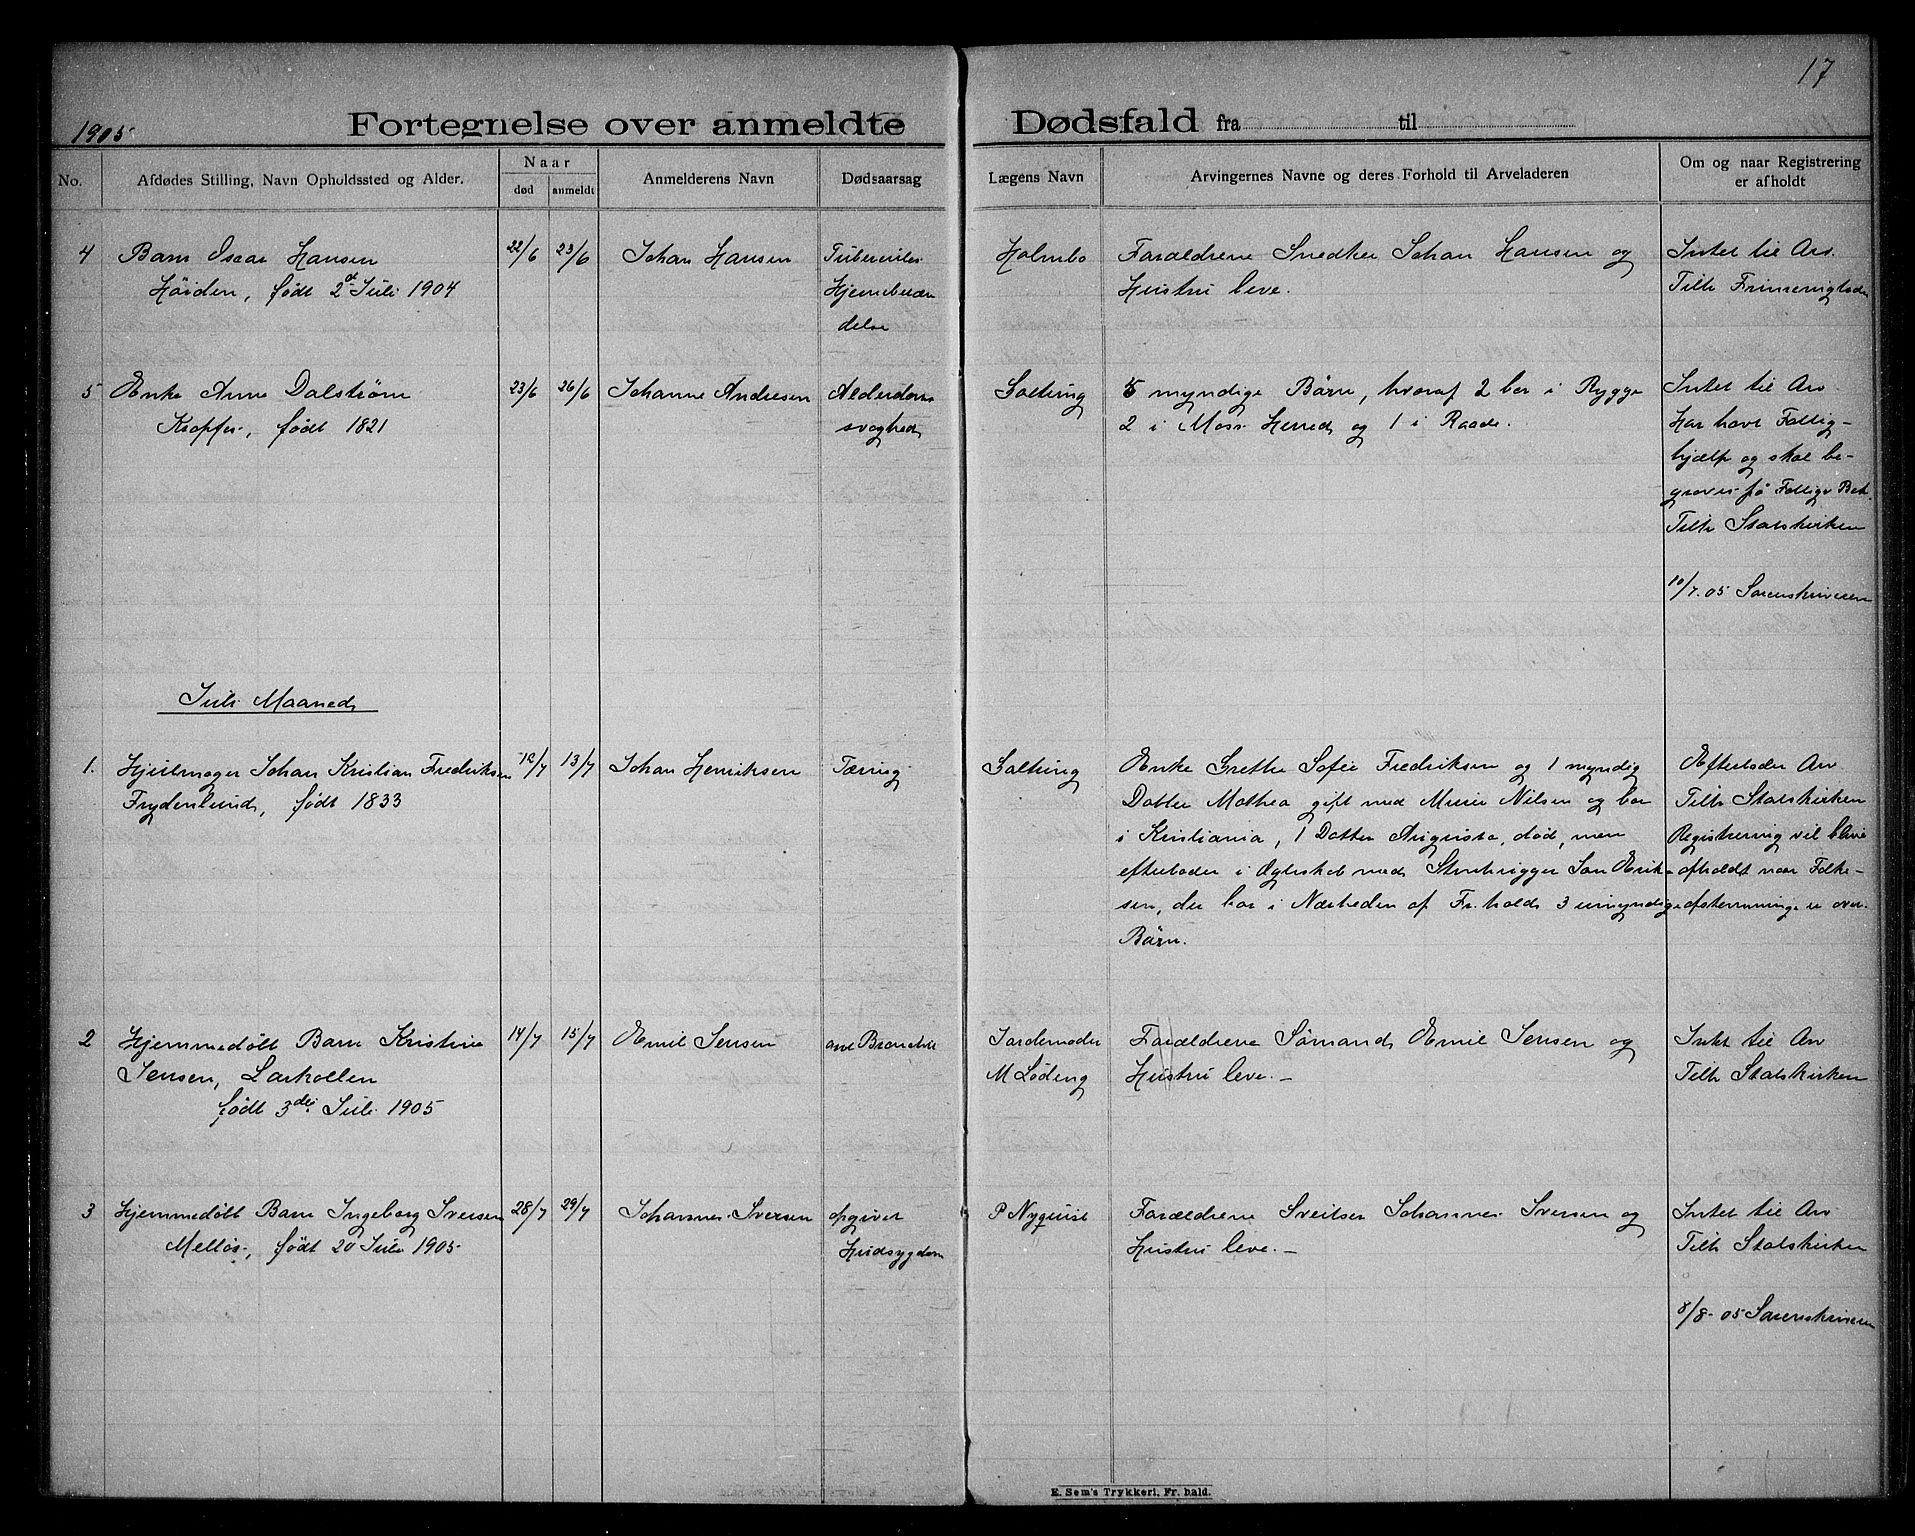 17
1905
Fortegnelse over anmeldte Dødsfald fra til
No.
Afdødes Stilling, Navn Opholdssted og Alder.
Naar
død
anmeldt
Anmelderens Navn
Dødsaarsag
Lægens Navn
Arvingernes Navne og deres Forhold til Arveladeren
Om og naar Registrering
er afholdt
4 Barn Oscar Hansen 22/6 23/6 Johan Hansen Tuberculøs Holmbo Forældrene Snedker Johan Hansen og Intet til Arv.
Høiden, født 2d Juli 1904 Hjernebetæn Hustru leve. Tilh Frimenigheden
delse
5 Enke Anne Dalstrøm 23/6 26/6 Johanne Andresen Alderdoms Soltving 5 myndige Børn, hvoraf 2 bor i Rygge Intet til Arv
Kropfos, født 1821 svaghed 2 i Moss Herred og 1 i Raade. Har havt Fattig-
hjælp og skal be-
graves på Fattigv Bek.
Tilh Statskirken
10/7. 05 Sorenskriveren
Juli Maaned
1. Hjulmager Johan Kristian Fredriksen 12/7 13/7 Johan Henriksen Tæring Soltving Enke Grethe Sofie Fredriksen og 1 myndig Efterlader Arv
Frydenlund, født 1833 Datter Mathea gift med Murer Nilsen og bor Tilh Statskirken
i Kristiania, 1 Datter Augusta, død, men Registrering vil blive
efterlader i Ægteskab med Stenhugger Jan Erik- afholdt naar Folke-
sen, der bor i Nærheden af Fr.hald 3 umyndige afstemninge er over.
Børn.
2 Hjemmedøbt Barn Kristine 14/7 15/7 Emil Jensen Jordemoder Forældrene Sømand Emil Jensen og Intet til Arv
Jensen, Larkollen M Løding Hustru leve.- Tilh Statskirken
født 3die Juli 1905
3 Hjemmedøbt Barn Ingeborg Iversen 28/7 29/7 Johannes Iversen opgivet P Nyquist Forældrene Sveitser Johannes Iversen og Intet til Arv
Melløs, født 20 Juli 1905 Hudsygdom Hustru leve.- Tilh Statskirken
8/8-05 Sorenskriveren
E. Sem's Trykkeri, Fr. hald.